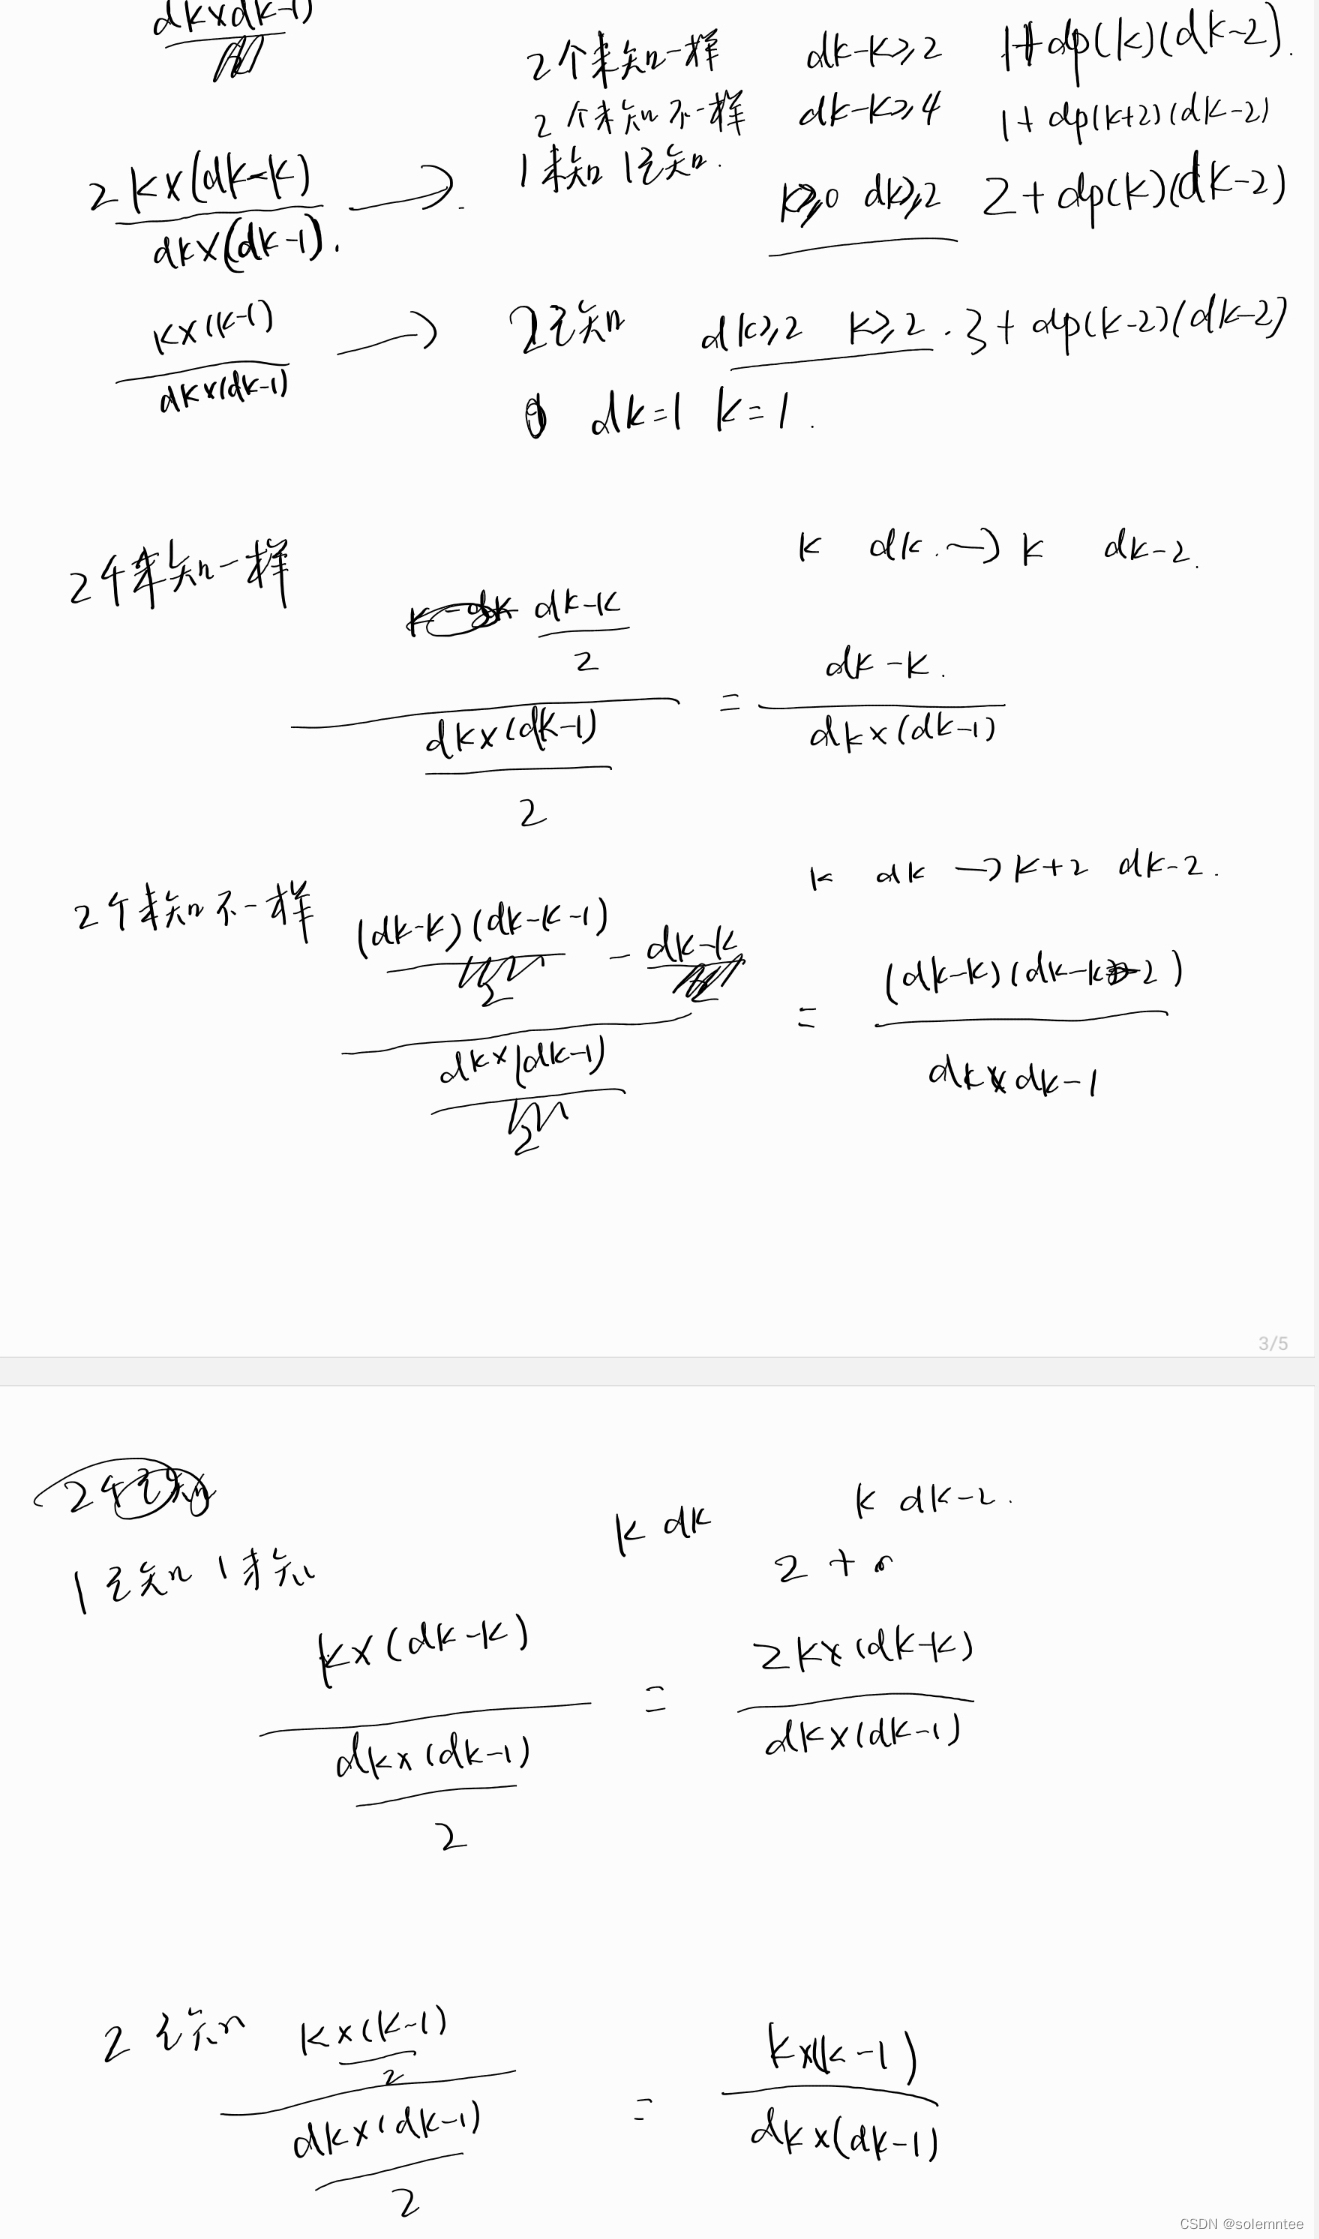 dk×dk-1)
2个未知一样 dk-k≥2 1+dp(k)(dk-2).
2个未知不一样 dk-k≥4 1+dp(k+2)(dk-2)
1未知 1已知.
2k×(dk-k)
dk×(dk-1).
k≥0 dk≥2 2+dp(k)(dk-2)
k×(k-1)
dk×(dk-1)
2已知 dk≥2 k≥2. 3+dp(k-2)(dk-2)
dk=1 k=1.
2个未知一样
k dk. → k dk-2.
dk-k
2
dk×(dk-1)
2
=
dk-k.
dk×(dk-1)
2个未知不一样
k dk → k+2 dk-2.
(dk-k)(dk-k-1)
2
-
dk-k
2
dk×(dk-1)
2
=
(dk-k)(dk-k-2)
dk×dk-1
3/5
2个已知
1已知 1未知
k dk k dk-2.
2+
k×(dk-k)
dk×(dk-1)
2
=
2k×(dk-k)
dk×(dk-1)
2已知
k×(k-1)
2
dk×(dk-1)
2
=
k×(k-1)
dk×(dk-1)
CSDN @solemntee